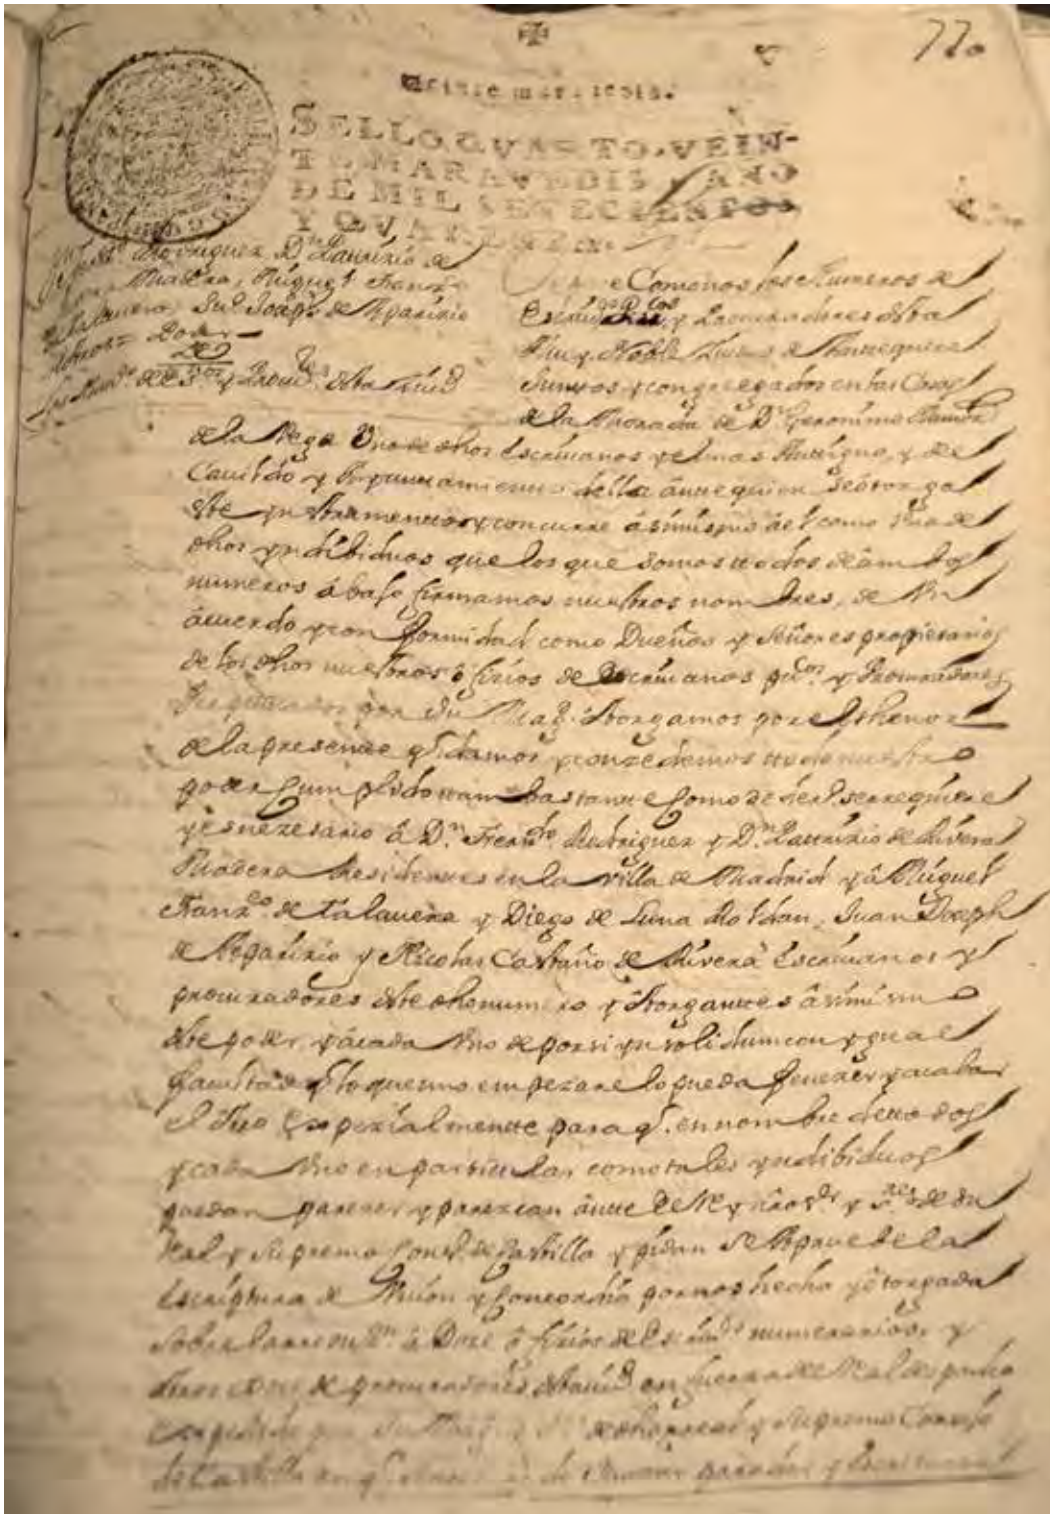 77
Veinte maravedis.
SELLO QVARTO, VEIN-
TE MARAVEDIS, AÑO
DE MIL SETECIENTOS
Y QVARENTA
Rodriguez Dn Patrizio de
Madera, Miguel Franzco
de talavera Jun Joseph de Aparizio
Poder
Como nos los Numeros de
Escrivanos y Procuradores desta
Muy Noble Ziud de Antequera
Juntos y congregados en las Casas
de la Morada de Dn Geronimo
de la Vega Uno de dhos Escrivanos y el mas Antiguo, y de
Cavildo y Ayuntamiento della ante quien se otorga
este ynstrumento y concurre asimismo a el como Uno de
dhos yndibiduos que los que somos ttodos de ambos
numeros abajo firmamos nuestros nombres, de Un
acuerdo y conformidad como Dueños y Señores propietarios
de los dhos nuestros ofizios de Escrivanos pucos y Procuradores
por Su Magd. otorgamos por el thenor
de la presente q. damos y conzedemos ttodo nuestro
poder Cumplido ttan bastante Como de dro. se requiere
y es nezesario a Dn. Franzco Rodriguez y Dn. Patrizio de Rivera
Madera Residentes en la villa de Madrid y a Miguel
Franzco de talavera y Diego de Luna Roldan, Juan Joseph
de Aparizio y Nicolas Castaño de Rivera Escrivanos y
procuradores deste dho numero y otorgantes asimismo
deste poder, y a cada Uno de por si ynsolidum con ygual
facultad q. lo que uno empezare lo pueda fenezer y acabar
el otro Espezialmente para q. en nombre de ttodos
y cada Uno en particular como tales yndibiduos
puedan parezer y parezcan ante el Rey nro sr y sres de su
Real y Supremo Consº. de Castilla y pidan se Apruebe la
Escriptura de Union y Concordia por nos hecha y otorgada
sobre la reduzn. a Doze ofizios de Escrivs numerarios y
otros doze de procuradores desta ciud en fuerza de Real despacho
expedido por Su Magd y de dho real y Supremo Consejo
de Castilla